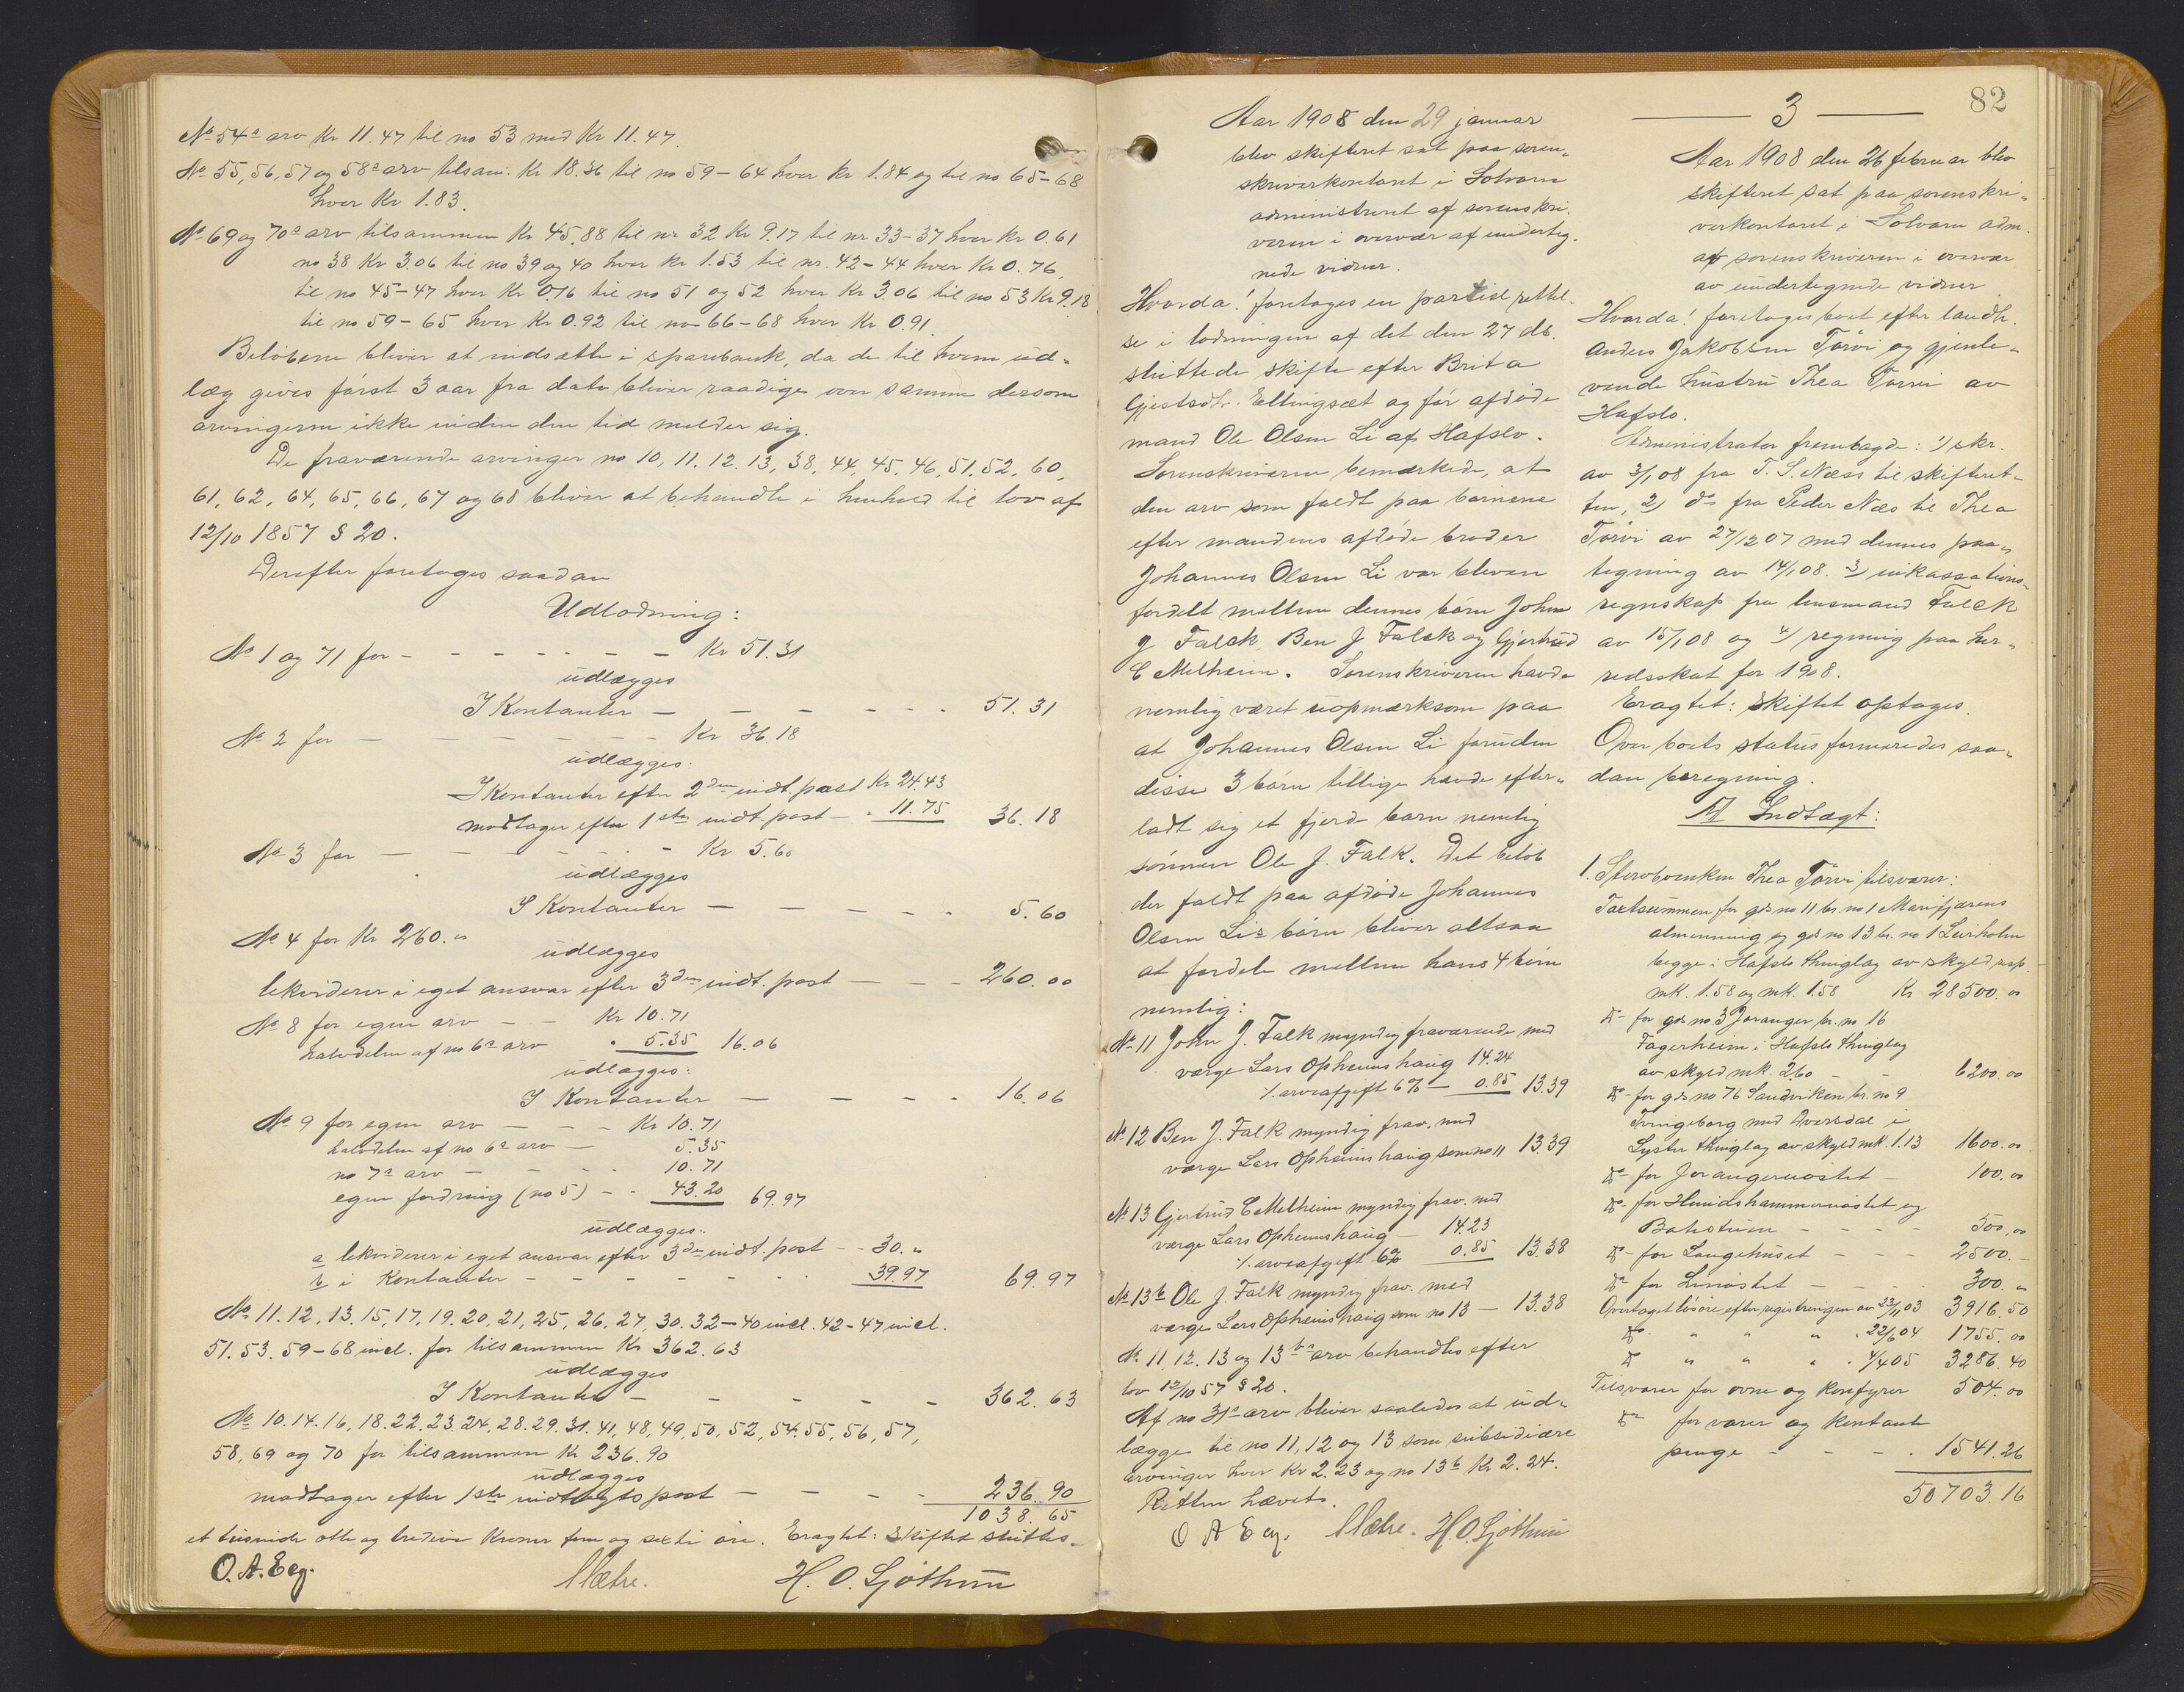 No 54ª arv Kr 11.47 til no 53 med Kr 11.47.
No 55, 56, 57 og 58ª arv tilsam. Kr 18.36 til no 59–64 hver Kr 1.84 og til no 65–68
hver Kr 1.83.
No 69 og 70ª arv tilsammen Kr 45.88 til nr 32 Kr 9.17 til nr 33–37 hver Kr 0.61
no 38 Kr 3.06 til no 39 og 40 hver Kr 1.53 til nr. 42–44 hver Kr 0.76,
til no 45–47 hver Kr 0.76 til no 51 og 52 hver Kr 3.06 til no 53 Kr 9.18
til no 59–65 hver Kr 0.92 til no 66–68 hver Kr 0.91.
Beløbene bliver at indsætte i sparebank, da de til hvem ud-
læg gives først 3 aar fra dato bliver raadige over samme dersom
arvingerne ikke inden den tid melder sig.
De fraværende arvinger no 10, 11. 12. 13, 38, 44, 45, 46, 51, 52, 60,
61, 62, 64, 65, 66, 67 og 68 bliver at behandle i henhold til lov af
12/10 1857 § 20.
Derefter foretoges saadan
Udlodning:
No 1 og 71 for – – – – – – Kr 51.31
udlægges
I Kontanter – – – – – – 51.31
No 2 for – – – – – – Kr 36.18
udlægges:
I Kontanter efter 2den indt. post Kr 24.43
modtager efter 1ste indt. post – " 11.75 36.18
No 3 for – – – – – Kr 5.60
udlægges
I Kontanter – – – – – 5.60
No 4 for Kr 260. "
udlægges
lekviderer i eget ansvar efter 3den indt. post – – – 260.00
No 8 for egen arv – – Kr 10.71
halvdelen af no 6ª arv " 5.35 16.06
udlægges:
I Kontanter – – – – 16.06
No 9 for egen arv – – – Kr 10.71
halvdelen af no 6ª arv – 5.35
no 7ª arv – – – – 10.71
egen fordring (no 5) – – 43.20 69.97
udlægges:
a lekviderer i eget ansvar efter 3die indt. post – – 30. "
b i Kontanter – – – – – – 39.97 69.97
No 11. 12, 13. 15, 17, 19. 20, 21, 25, 26, 27, 30. 32–40 incl. 42–47 incl.
51. 53. 59–68 incl. for tilsammen Kr 362.63
udlægges
I Kontanter – – – – – 362.63
No 10. 14. 16, 18. 22. 23. 24, 28. 29. 31. 41, 48, 49, 50, 52, 54. 55, 56, 57,
58, 69 og 70 for tilsammen Kr 236.90
udlægges
modtager efter 1ste indtægts post – – – – 236.90
1038.65
et tusinde otte og tredive Kroner fem og sexti øre. Eragtet: Skiftet sluttes.
O. A. Eeg. Mætre. H. O. Gjøthun
Aar 1908 den 29 januar
blev skifteret sat paa soren-
skriverkontoret i Solvorn
administreret af sorenskri-
veren i overvær af underteg-
nede vidner.
Hvorda! foretoges en partiel rettel-
se i lodningen af det den 27 ds.
sluttede skifte efter Brita
Gjestsdtr. Ellingsæt og før afdøde
mand Ole Olsen Li af Hafslo.
Sorenskriveren bemærkede, at
den arv som faldt paa børnene
efter mandens afdøde broder
Johannes Olsen Li var bleven
fordelt mellem dennes børn John
J Falck, Ben J Falck og Gjertrud
C Melheim. Sorenskriveren havde
nemlig været uopmærksom paa
at Johannes Olsen Li foruden
disse 3 børn tillige havde efter-
ladt sig et fjerde barn nemlig
sønnen Ole J. Falk. Det beløb
der faldt paa afdøde Johannes
Olsen Lis børn bliver altsaa
at fordele mellem hans 4 børn
nemlig:
No 11 John J. Falk myndig fraværende med
værge Lars Opheimshaug 14.24
÷ arveafgift 6% – 0.85 13.39
No 12 Ben J. Falk myndig frav. med
værge Lars Opheimshaug som no 11 13.39
No 13 Gjertrud C Melheim myndig frav. med
værge Lars Opheimshaug – 14.23
÷ arveafgift 6% 0.85 13.38
No 13b Ole J. Falk myndig frav. med
værge Lars Opheimshaug som no 13 – 13.38
No 11, 12. 13 og 13b ª arv behandles efter
lov 12/10 57 § 20.
Af no 31ª arv bliver saaledes at ud-
lægge til no 11, 12 og 13 som subsidiære
arvinger hver Kr 2.23 og no 13b Kr 2.24.
Retten hævet.
O A Eeg. Mætre. H. O. Gjøthun
82
3
Aar 1908 den 26 februar blev
skifteret sat paa sorenskri-
verkontoret i Solvorn adm.
af sorenskriveren i overvær
av undertegnede vidner
Hvorda! foretoges boet efter landh.
Anders Jakobsen Tørvi og gjenle-
vende hustru Thea Tørvi av
Hafslo.
Administrator fremlagde: 1) skr.
av 3/1 08 fra T. S. Næss til skifteret-
ten, 2) do fra Peder Næs til Thea
Tørvi av 27/12 07 med dennes paa-
tegning av 14/1 08. 3) inkassations-
regnskap fra lensmand Falck
av 15/1 08 og 4) regning paa her-
redsskat for 1908.
Eragtet: Skiftet optages.
Over boets status formeredes saa-
dan beregning.
A Indtægt:
1. Stervboenken Thea Tørvi tilsvarer:
Taxtsummen for gds no 11 br. no 1 Marifjærens
almenning og gds no 13 br. no 1 Leirholm
begge i Hafslo thinglag av skyld resp.
mk. 1.58 og mk. 1.58 Kr. 28500.00
do – for gds no 3 Joranger br. no 16
Fagerheim i Hafslo thinglag
av skyld mk. 2.60 – – 6200.00
do – for gds no 76 Sandviken br. no 9
Tvingeborg med Kversdal i
Lyster thinglag av skyld mk. 1.13 1600.00
do – for Jorangernøstet – 100.00
do – for Hunidshammernøstet og
Batstuen – – – – 500,00
do – for Langehuset – – – 2500. –
do for Linøstet – – – – 300. "
Overtaget løsøre efter registreringen av 23/11 03 3916.50
do " " " " 22/6 04 1755.00
do " " " " 4/4 05 3286.40
Tilsvarer for ovne og Komfyrer 504.00
do for varer og kontant
penge – – – – 1541.26
50703.16